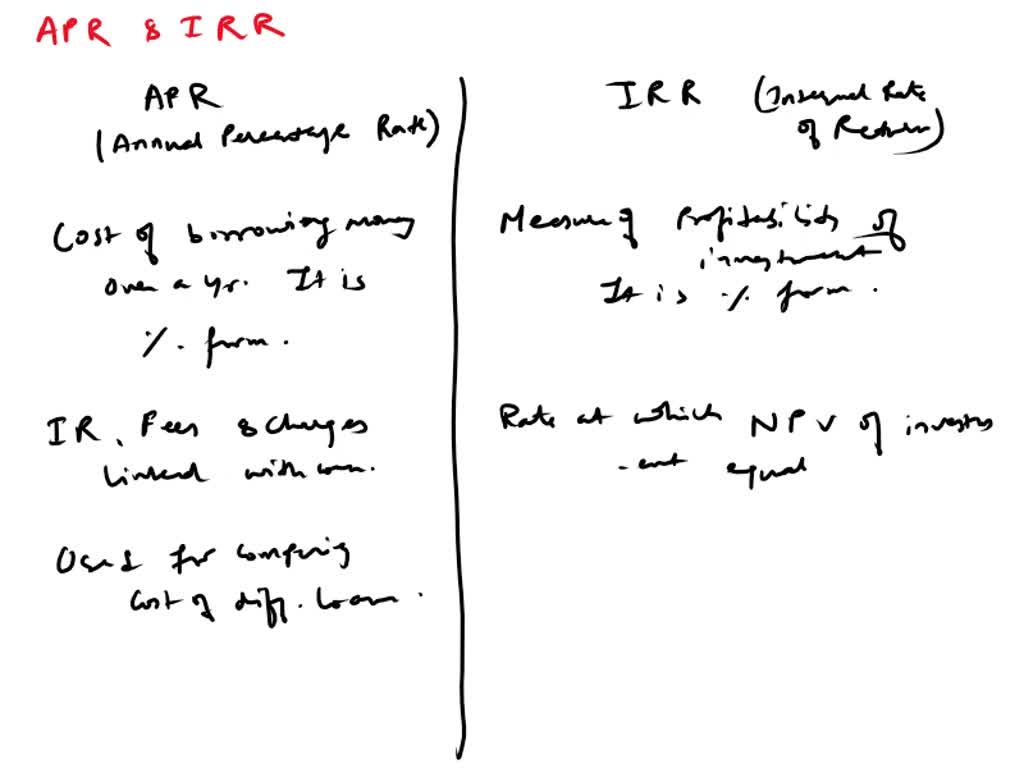 APR & IRR
APR
(Annual Percentage Rate)
Cost of borrowing money
over a yr. It is
% . form .
IR, Fees & charges
linked with loan.
Used for comparing
cost of diff. loan .
IRR (Internal Rate
of Return)
Measure of Profitability of
investment
It is % form .
Rate at which NPV of investm
-ent equal